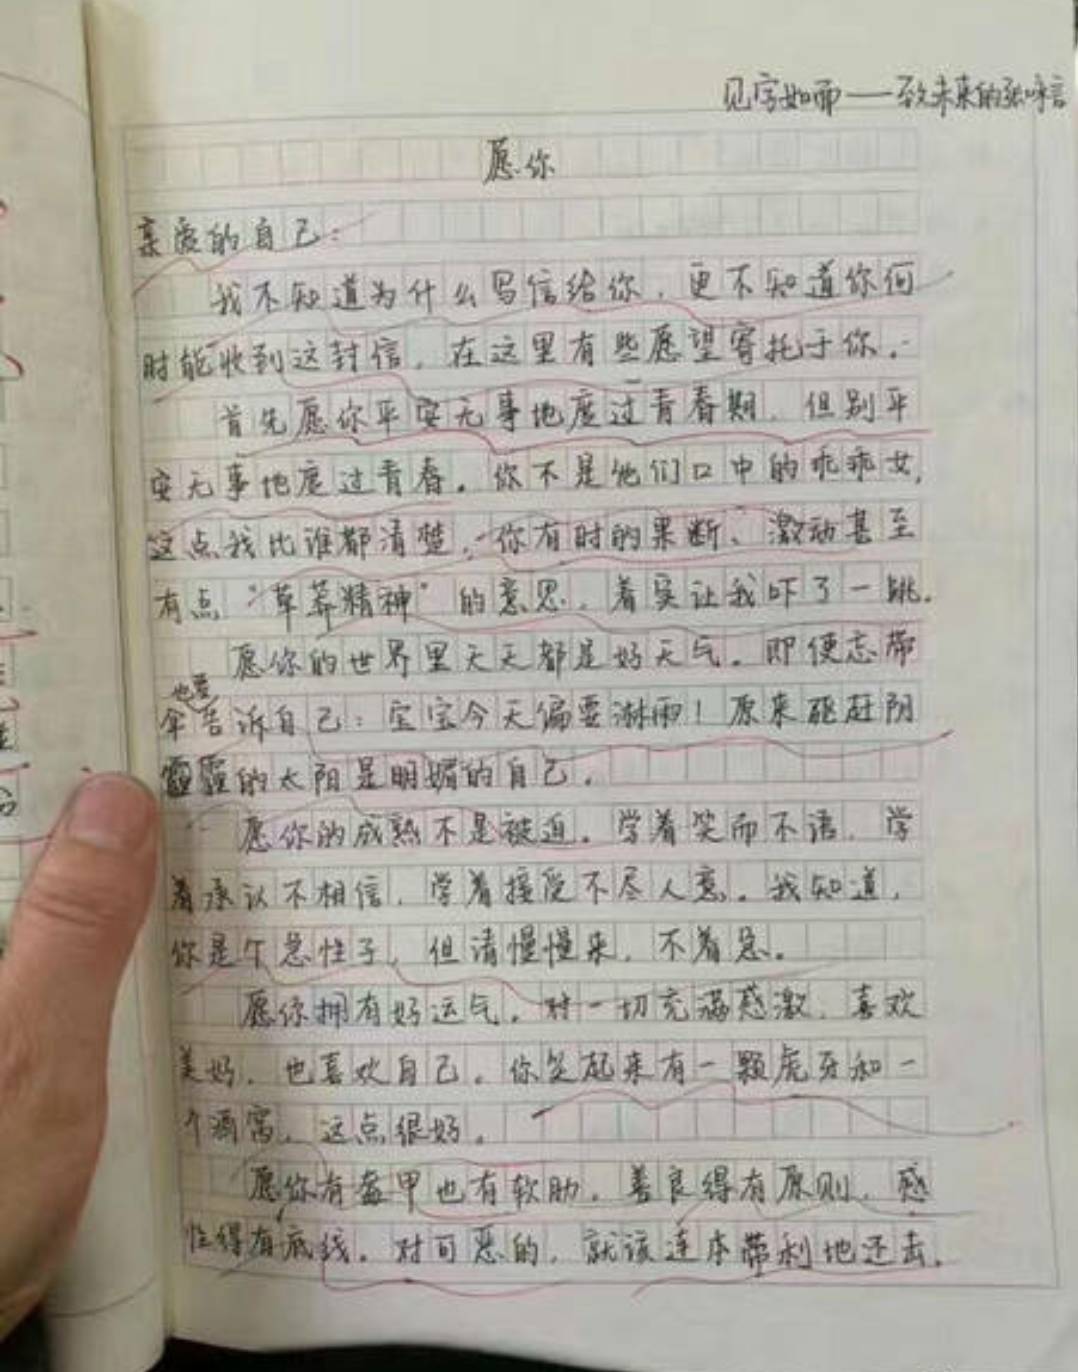 见字如面——致未来的张
愿你
亲爱的自己：
我不知道为什么写信给你，更不知道你何
时能收到这封信，在这里有些愿望寄托于你。
首先愿你平安无事地度过青春期，但别平
安无事地度过青春。你不是他们口中的乖乖女，
这点我比谁都清楚，你有时的果断、激动甚至
有点“草莽精神”的意思，着实让我吓了一跳。
愿你的世界里天天都是好天气。即便忘带
伞也要告诉自己：宝宝今天偏要淋雨！原来驱赶阴
霾的太阳是明媚的自己。
愿你的成熟不是被迫。学着笑而不语，学
着承认不相信，学着接受不尽人意。我知道，
你是个急性子，但请慢慢来，不着急。
愿你拥有好运气。对一切充满感激，喜欢
美好，也喜欢自己。你笑起来有一颗虎牙和一
个酒窝，这点很好。
愿你有盔甲也有软肋。善良得有原则，感
性得有底线。对可恶的，就该连本带利地还击。